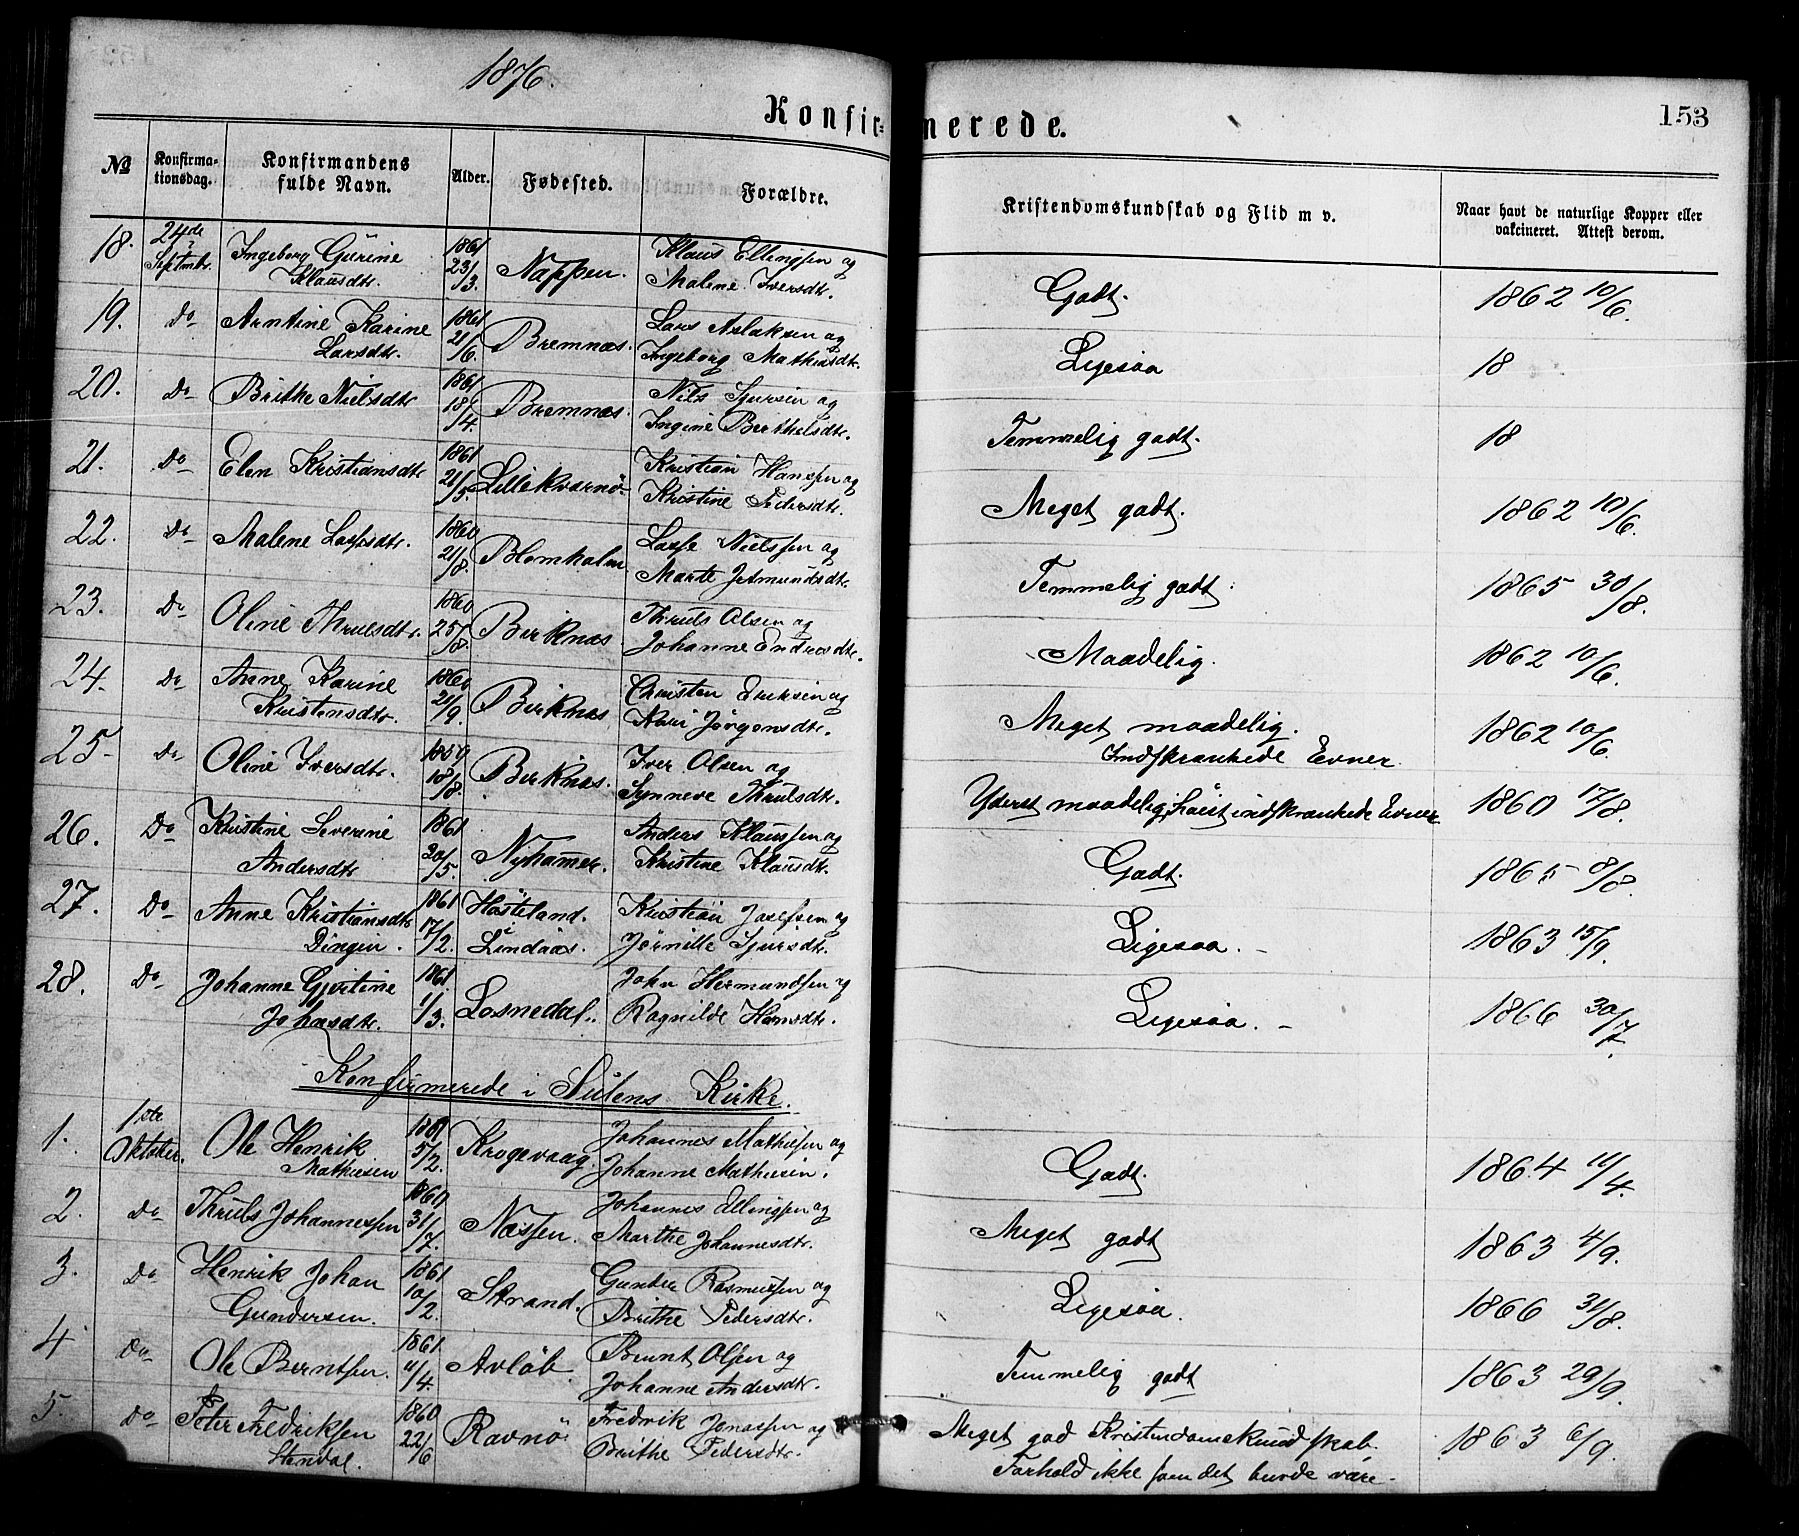 1876.
Konfirmerede.
153
No
Konfirmationsdag.
Konfirmandens fulde Navn.
Alder.
Fødested.
Forældre.
Kristendomskundskab og Flid m v.
Naar havt de naturlige Kopper eller vakcineret. Attest derom.
18. 24de Septmbr. Ingeborg Gurine Klausdtr. 1861 23/3. Nappen. Klaus Ellingsen og Malene Iversdtr. Godt. 1862 10/6.
19. Do Arntine Karine Larsdtr. 1861 21/6. Bremnæs. Lars Aslaksen og Ingeborg Mathiasdtr. Ligesaa 18
20. Do Brithe Nielsdtr 1861 18/4. Bremnæs. Nils Sjursen og Ingine Berthelsdtr. Temmelig godt. 18
21. Do Elen Kristiansdtr 1861 21/5. Lillekvarnö. Kristian Hansen og Kristine Pedersdtr. Meget godt. 1862 10/6.
22. Do Malene Lassesdtr. 1860 21/8. Blomholm Lasse Nielssen og Marte Jetmundsdtr. Temmelig godt. 1865 30/8.
23. Do Oline Thrulsdtr. 1860 25/8. Birknæs Thruls Olsen og Johanne Endresdtr. Maadelig. 1862 10/6.
24. Do Anne Karine Kristensdtr. 1860 21/9. Birknæs Christen Eriksen og Kari Jörgensdtr. Meget maadelig. Indskrænkede Evner. 1862 10/6.
25. Do Oline Iversdtr. 1859 18/8. Birknæs. Iver Olsen og Synneve Thrulsdtr. Yderst maadelig, höist indskrænkede Evner 1860 17/8.
26. Do Kristine Severine Andersdtr 1861 20/5. Nyhamer. Anders Klaussen og Kristine Klausdtr. Godt. 1865 8/8.
27. Do Anne Kristiansdtr Dingen. 1861 17/2. Hösteland. Lindaas. Kristian Josefsen og Jörnitte Sjursdtr. Ligesaa. 1863 15/9.
28. Do Johanne Gjertine Johnsdtr. 1861. 1/3. Losnedal. John Hermundsen og Ragnilde Hansdtr. Ligesaa. 1866 30/7.
Konfirmerede i Sulens Kirke.
1. 1ste Oktober. Ole Henrik Mathiesen 1861 5/2. Krogevaag. Johannes Mathiesen og Johanne Mathiesen. Godt. 1864 11/4.
2. Do Thruls Johannessen 1860 31/7. Næssen. Johannes Ellingsen og Marthe Johannesdtr. Meget godt 1863 4/9.
3. Do Henrik Johan Gundersen. 1861 10/2. Strand. Gunder Rasmussen og Brithe Pedersdtr. Ligesaa. 1866 31/8.
4. Do Ole Berntsen. 1861. 11/4. Avlöb. Bernt Olsen og Johanne Andersdtr. Temmelig godt 1863 29/9.
5. Do Peter Fredriksen Stendal. 1860 22/6 Ravnö Fredrik Jonassen og Brithe Pedersdtr. Meget god Kristendomskundskab. Forhold ikke som det burde være. 1863 6/9.